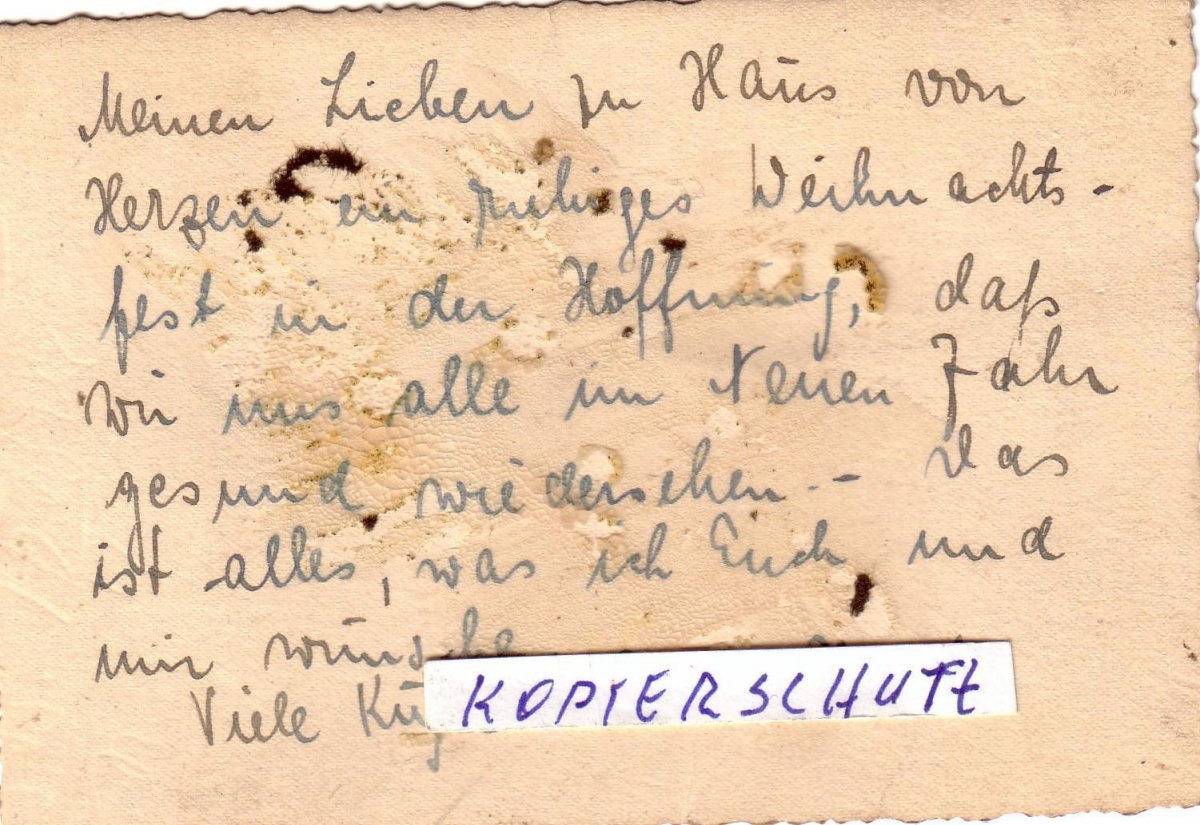 Meinen Lieben zu Haus von
Herzen ein ruhiges Weihnachts-
fest in der Hoffnung, daß
wir uns alle im Neuen Jahr
gesund wiedersehen. - Das
ist alles, was ich Euch und
mir wünsche
Viele
KOPIERSCHUTZ